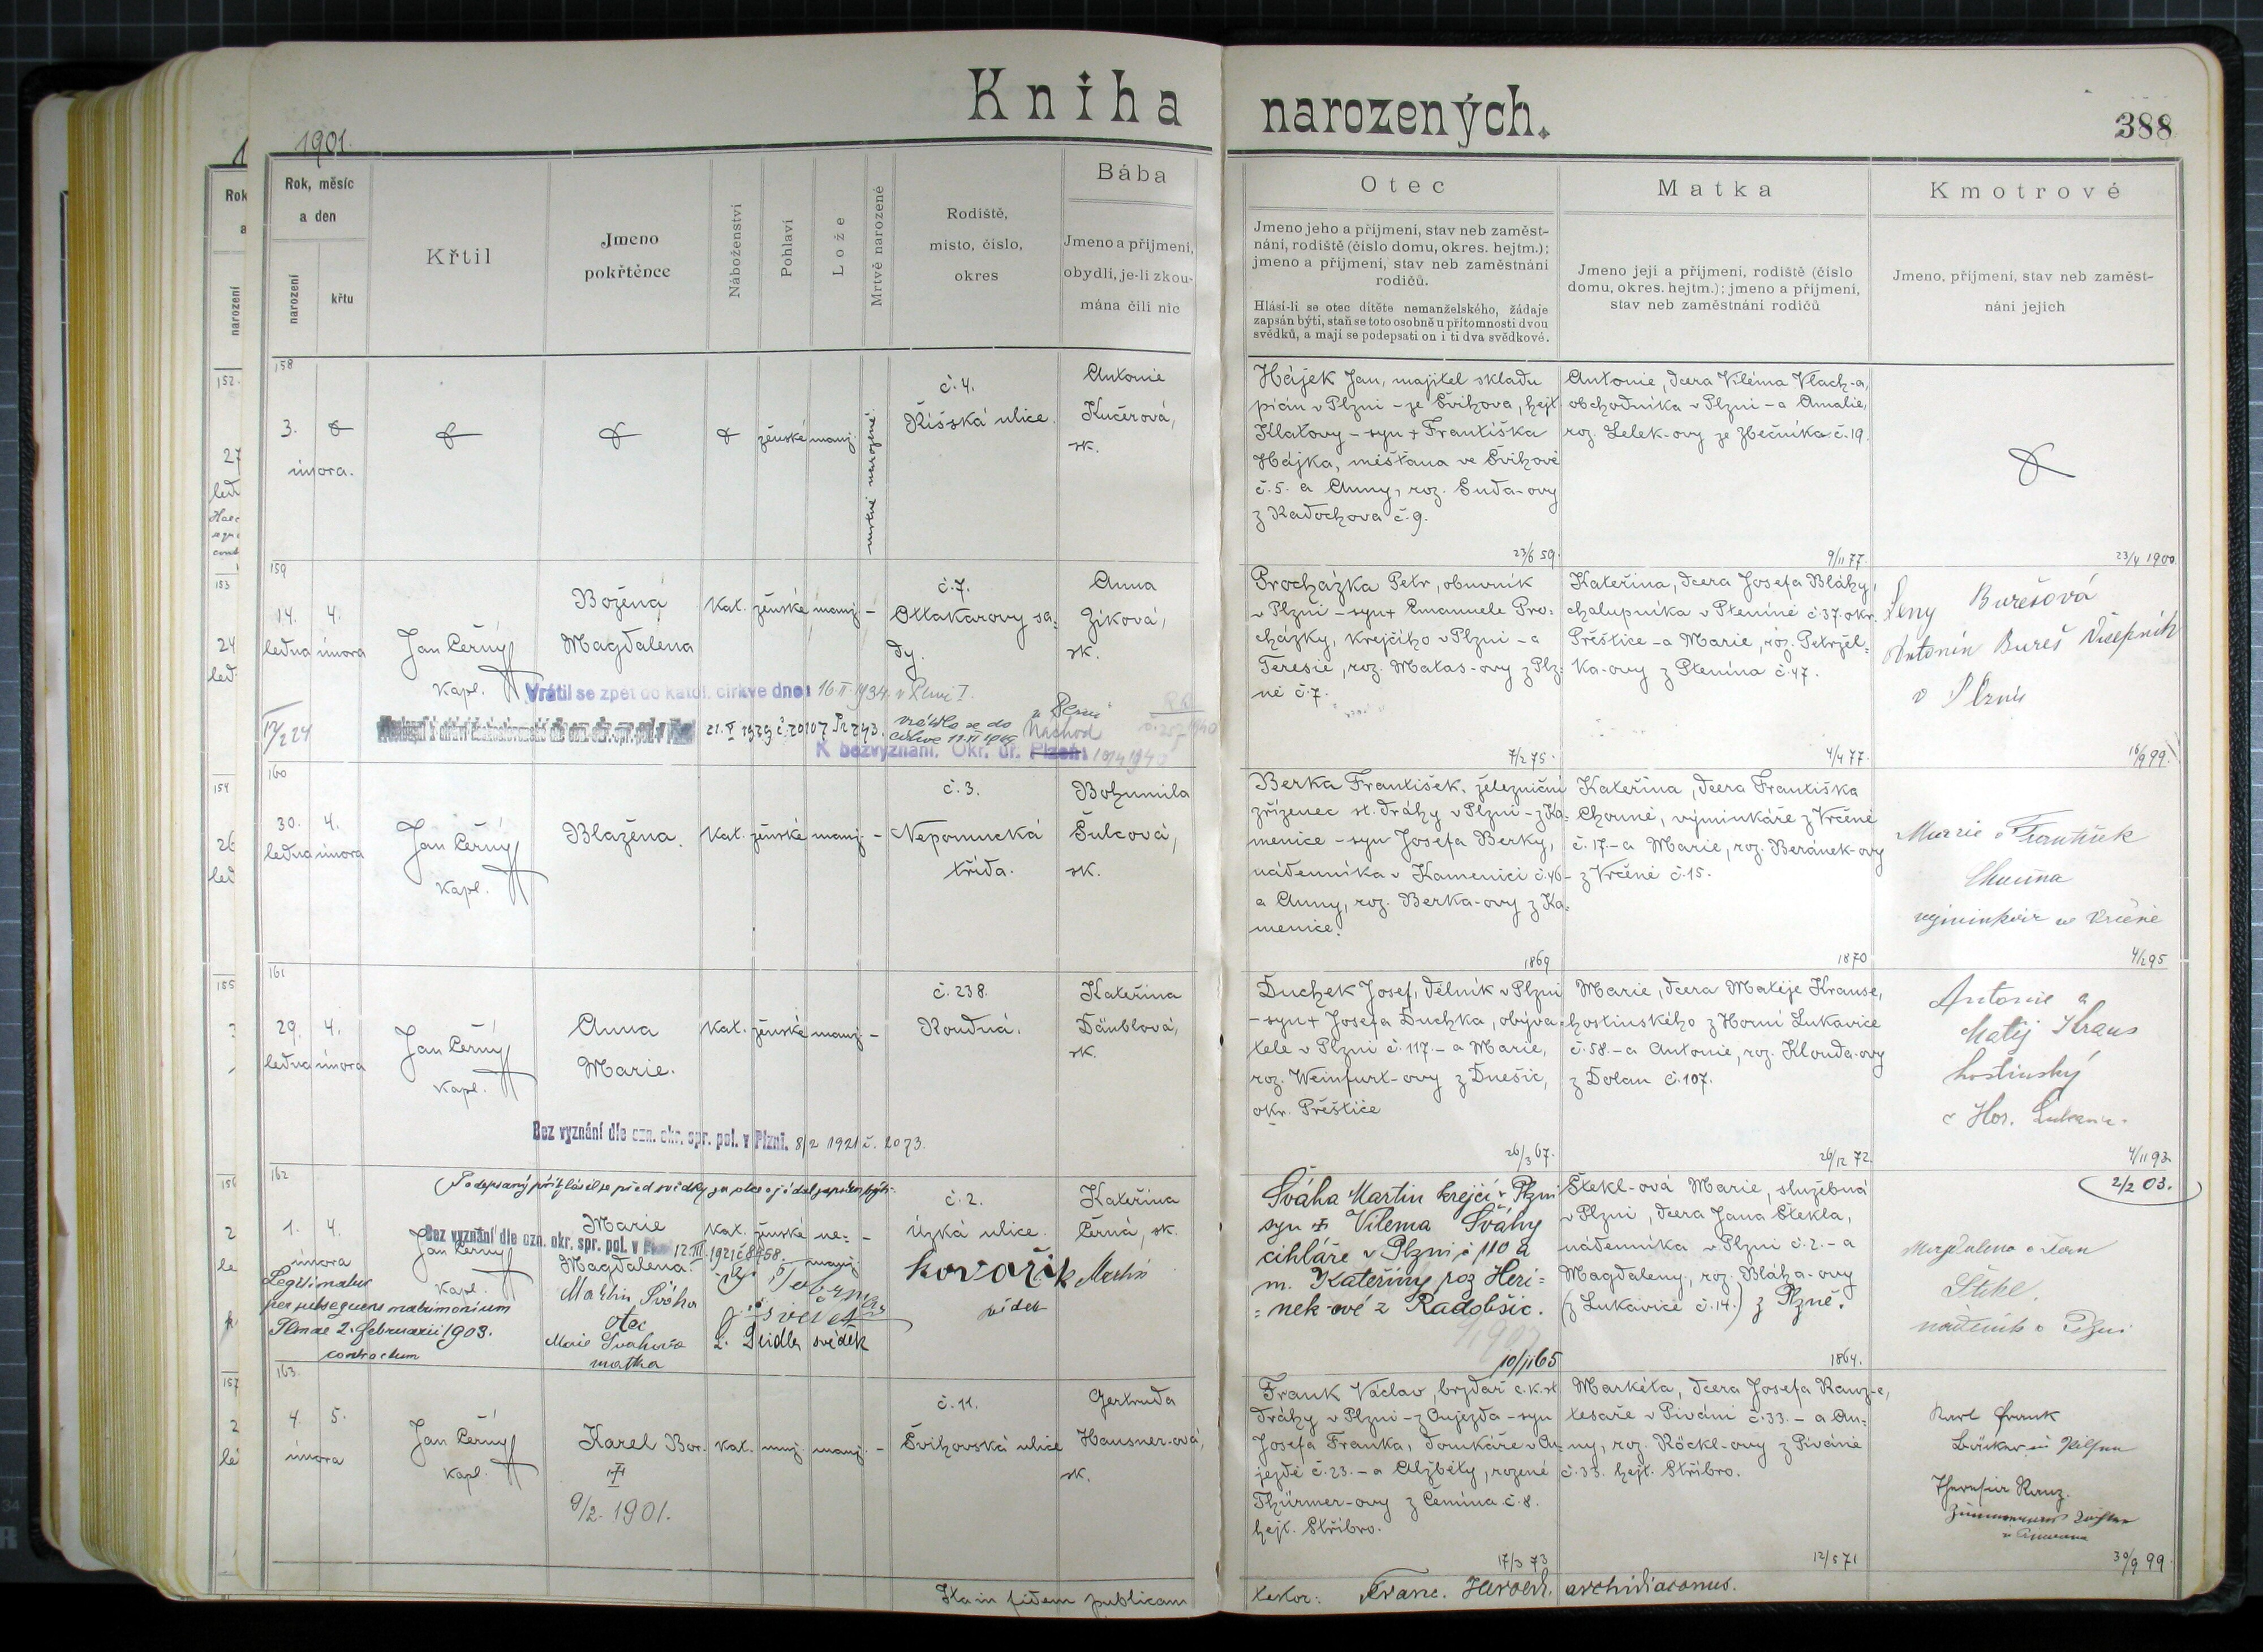 Kniha narozených.
1901.
388
Rok, měsíc
a den
narození
křtu
Křtil
Jmeno
pokřtěnce
Náboženství
Pohlaví
Lože
Mrtvě narozené
Rodiště,
místo, číslo,
okres
Bába
Jmeno a příjmení,
obydlí, je-li zkou-
mána čili nic
Otec
Jmeno jeho a příjmení, stav neb zaměst-
nání, rodiště (číslo domu, okres. hejtm.);
jmeno a příjmení, stav neb zaměstnání
rodičů.
Hlásí-li se otec dítěte nemanželského, žádaje
zapsán býti, staň se toto osobně u přítomnosti dvou
svědků, a mají se podepsati on i ti dva svědkové.
Matka
Jmeno její a příjmení, rodiště (číslo
domu, okres. hejtm.); jmeno a příjmení,
stav neb zaměstnání rodičů
Kmotrové
Jmeno, příjmení, stav neb zaměst-
nání jejich
158
3.
února.
ženské
manž.
mrtvě narozené.
č. 4.
Říšská ulice.
Antonie
Kučerová,
zk.
Hájek Jan, majitel skladu
pícin v Plzni - ze Švihova, hejt.
Klatovy - syn + Františka
Hájka, měšťana ve Švihově
č. 5. a Anny, roz. Suda-ovy
z Radochova č. 9.
23/6 59.
Antonie, dcera Viléma Vlach-a,
obchodníka v Plzni - a Amalie,
roz. Lelek-ovy ze Zbečníka č. 19.
9/11 77.
23/4 1900
159
14. 4.
ledna února
Jan Černý
kapl.
Božena
Magdalena
kat. ženské manž. -
č. 7.
Ottakarovy sa=
dy.
Anna
Ziková,
zk.
Vrátil se zpět do katol. církve dne: 16.II.1934. v Plzni I.
17/2 24
21.V 1939 č. 20107
K bezvyznání. Okr. úř. Plzeň
Náchod
Procházka Petr, obuvník
v Plzni - syn + Emanuele Pro=
cházky, krejčího v Plzni - a
Teresie, roz. Matas-ovy z Plz=
ně č. 7.
7/2 75.
Kateřina, dcera Josefa Bláhy,
chalupníka v Ptenině č. 37. okr.
Přeštice - a Marie, roz. Petržel=
ka-ovy z Ptenína č. 47.
4/4 77.
Burešová
Antonín Bureš
v Plzni
16/9 99.
160
30. 4.
ledna února
Jan Černý
kapl.
Blažena.
kat. ženské manž. -
č. 3.
Nepomucká
třída.
Bohumila
Šulcová,
zk.
Berka František, železniční
zřízenec st. dráhy v Plzni - z Ka=
menice - syn Josefa Berky,
nádenníka v Kamenici č. 46 -
a Anny, roz. Berka-ovy z Ka=
menice.
1869
Kateřina, dcera Františka
Chouně, výminkáře z Vrčeně
č. 17 - a Marie, roz. Beránek-ovy
z Vrčeně č. 15.
1870
Marie a František
Chouna
výminkář ve Vrčeně
4/2 95
161
29. 4.
ledna února
Jan Černý
kapl.
Anna
Marie.
kat. ženské manž. -
č. 238.
Roudná.
Kateřina
Däublová,
zk.
Bez vyznání dle ozn. okr. spr. pol. v Plzni. 8/2 1921 č. 2073.
Duchek Josef, dělník v Plzni
- syn + Josefa Duchka, obýva=
tele v Plzni č. 117. - a Marie,
roz. Weinfurt-ovy z Dnešic,
okr. Přeštice
26/3 67.
Marie, dcera Matěje Krause,
hostinského z Horní Lukavice
č. 58. - a Antonie, roz. Klouda-ovy
z Dolan č. 107.
26/12 72.
Antonie a
Matěj Kraus
hostinský
4/11 93
162
Podepsaný přihlásil se před svědky za otce a žádal zapsán býti.
1. 4.
února
Jan Černý
kapl.
Marie
Magdalena.
kat. ženské ne=
manž. -
č. 2.
Úzká ulice.
Kateřina
Černá, zk.
Bez vyznání dle ozn. okr. spr. pol. v 12.III.1921
Legitimatus
per subsequens matrimonium
Plnae 2. februarii 1903.
contractum
Martin Sváha
otec
Marie Sváhová
matka
L. Seidler svědek
Kovařík Martin
svědek
Sváha Martin krejčí v Plzni
syn + Vilema Sváhy
cihláře v Plzni č 110 a
m. Kateřiny roz Heri=
=nek-ové z Radobšic.
10/11 65
Štekl-ová Marie, služebná
v Plzni, dcera Jana Štekla,
nádenníka v Plzni č. 2. - a
Magdaleny, roz. Bláha-ovy
(z Lukavice č. 14.) z Plzně.
1864.
2/2 03.
Magdalena a Jan
Štekl.
nádeník v Plzni
163.
4. 5.
února
Jan Černý
kapl.
Karel Bor.
9/2. 1901.
kat. muž. manž. -
č. 11.
Švihovská ulice
Gertruda
Hausner-ová,
zk.
Frank Václav, brzdař c. k. st.
dráhy v Plzni - z Oujezda - syn
Josefa Franka, domkáře v Ou=
jezdě č. 23. - a Alžběty, rozené
Thürmer-ovy z Čemína č. 8.
hejt. Stříbro.
17/3 73
Markéta, dcera Josefa Ranz-e,
tesaře v Pivani č. 33. - a An=
ny, roz. Röckl-ovy z Pivaně
č. 33. hejt. Stříbro.
12/5 71
Karl Frank
Theresia Ranz.
30/9 99.
Ita in fidem publicam testor: Franc. Herold, archidiaconus.